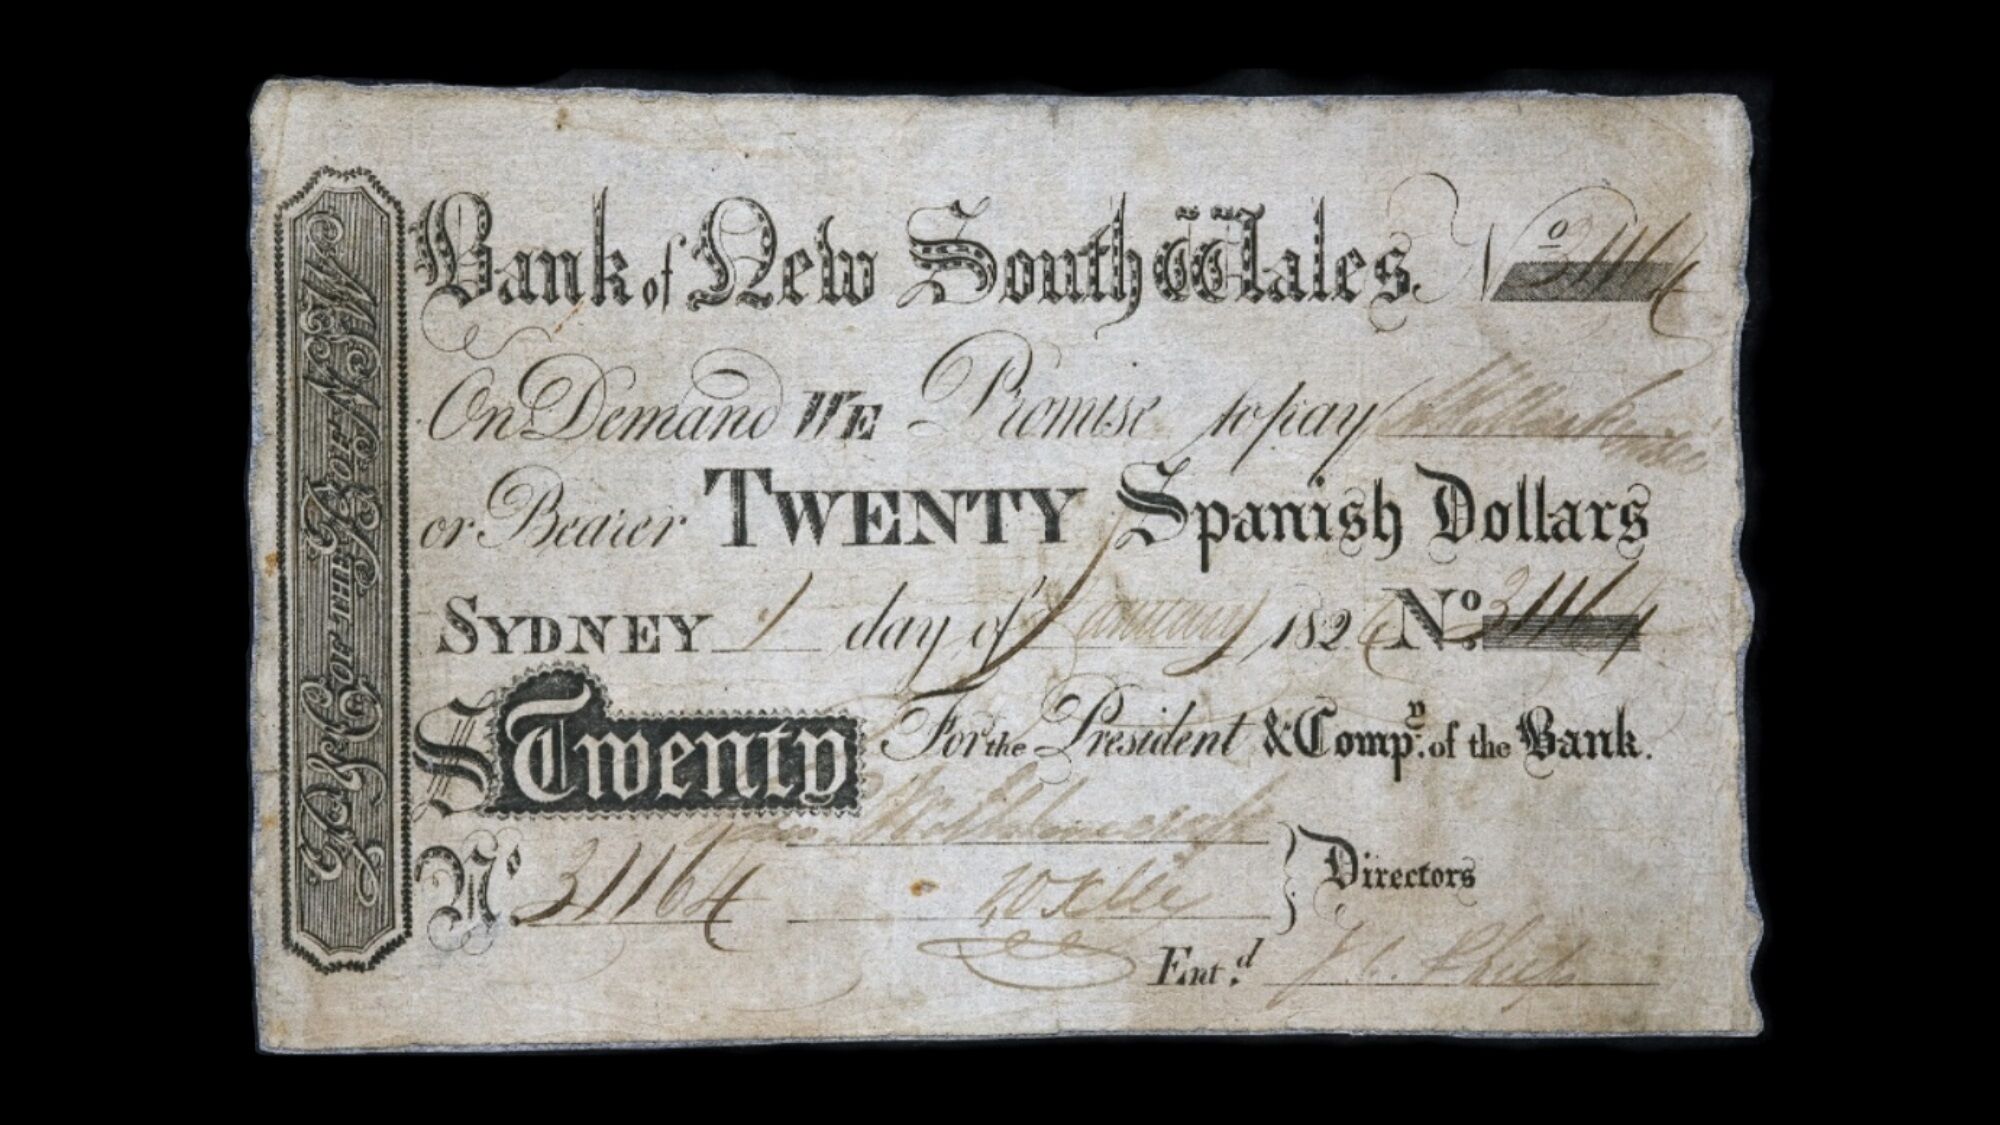 P. & C. OF THE B. OF N. S. W.
Bank of New South Wales. No 31164
On Demand WE Promise to pay
or Bearer TWENTY Spanish Dollars
SYDNEY 1 day of January 1826 No. 31164
S Twenty For the President & Compy. of the Bank.
No. 31164 Directors
Entd.